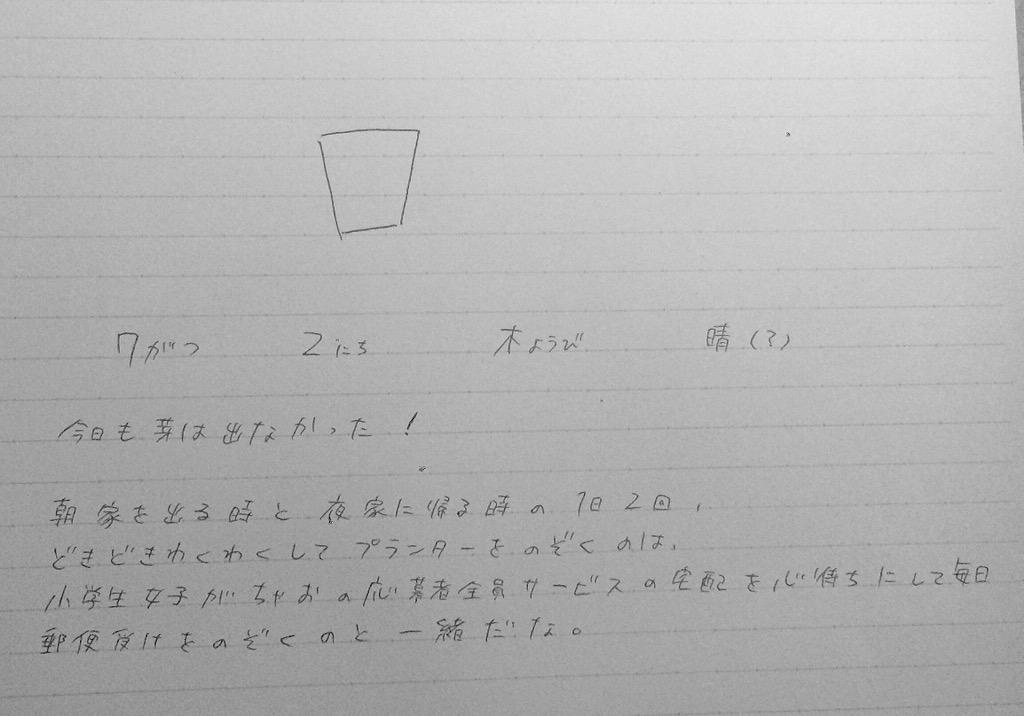 7がつ 2にち 木ようび 晴(?)
今日も芽は出なかった!
朝家を出る時と夜家に帰る時の1日2回,
どきどきわくわくしてプランターをのぞくのは,
小学生女子がちゃおの応募者全員サービスの宅配を心待ちにして毎日
郵便受けをのぞくのと一緒だな。